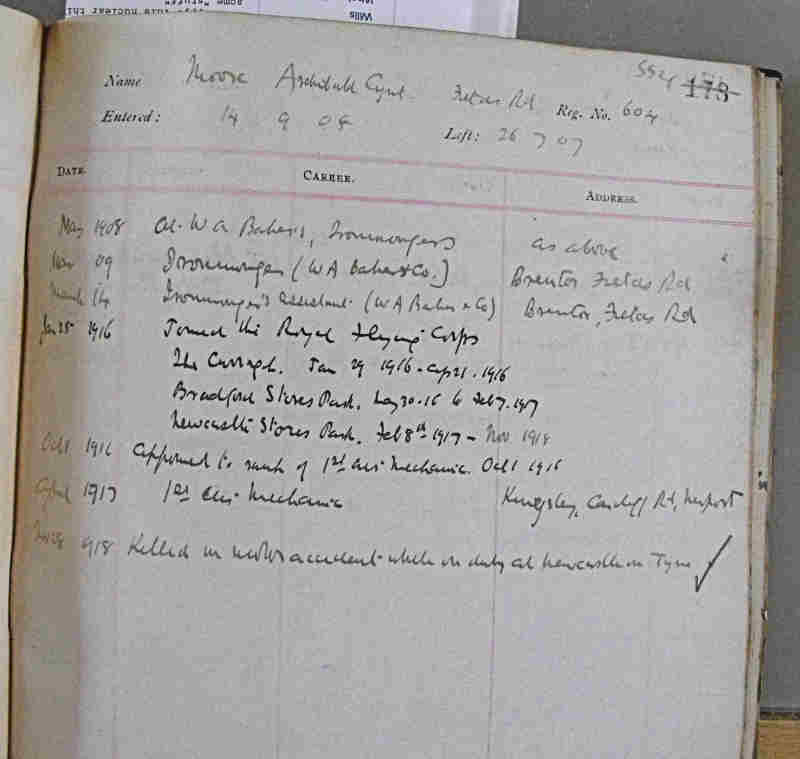 Wills
554 173
Name Moore Archibald Cyril. Fields Rd Reg. No. 604
Entered: 14 9 04 Left: 26 7 07
DATE. CAREER. ADDRESS.
May 1908 At W A Baker's, Ironmongers as above
Nov 09 Ironmonger (W A Baker & Co.) Brentor Fields Rd
March 14 Ironmonger's Assistant (W A Baker & Co) Brentor, Fields Rd
Jan 28 1916 Joined the Royal Flying Corps
The Curragh. Jan 29 1916 - Ap 21. 1916
Bradford Stores Park. May 30.16 to Feb 7. 1917
Newcastle Stores Park. Feb 8th 1917 - Nov 1918
Oct 1 1916 Appointed to rank of 1st air Mechanic. Oct 1 1916
April 1917 1st Air Mechanic Kingsley, Cardiff Rd, Newport
Nov 28 1918 Killed in motor accident while on duty at Newcastle on Tyne ✓